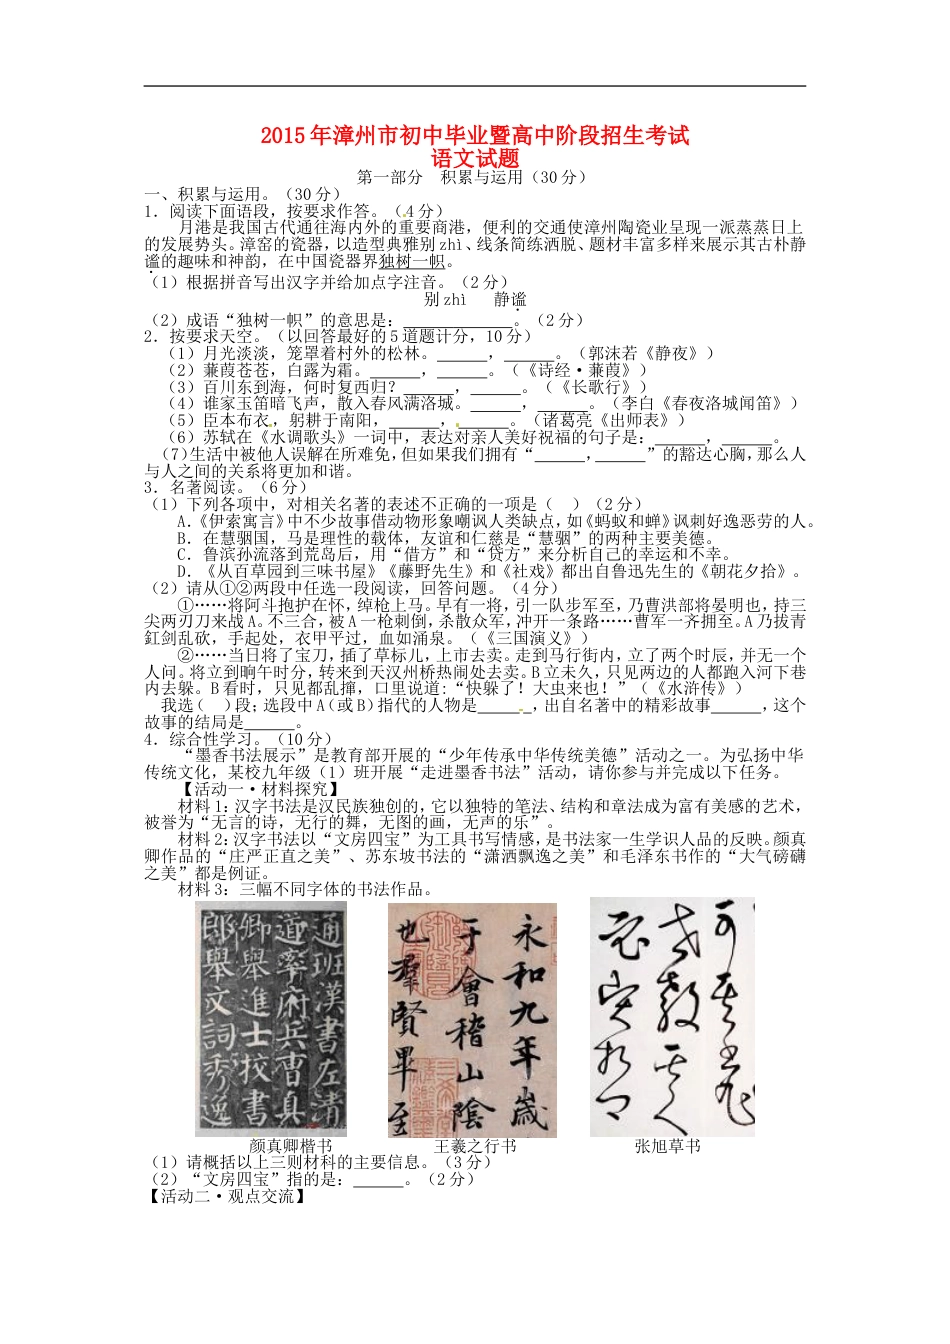 2015年漳州市初中毕业暨高中阶段招生考试
语文试题
第一部分　积累与运用(30分)
一、积累与运用。(30分)
1．阅读下面语段，按要求作答。(4分)
月港是我国古代通往海内外的重要商港，便利的交通使漳州陶瓷业呈现一派蒸蒸日上
的发展势头。漳窑的瓷器，以造型典雅别zhì、线条简练洒脱、题材丰富多样来展示其古朴静
谧的趣味和神韵，在中国瓷器界独树一帜。
(1)根据拼音写出汉字并给加点字注音。(2分)
别zhì　　静谧
(2)成语“独树一帜”的意思是：____________。(2分)
2．按要求天空。(以回答最好的5道题计分，10分)
(1)月光淡淡，笼罩着村外的松林。______，______。(郭沫若《静夜》)
(2)蒹葭苍苍，白露为霜。______，______。(《诗经·蒹葭》)
(3)百川东到海，何时复西归？______，______。(《长歌行》)
(4)谁家玉笛暗飞声，散入春风满洛城。______，______。(李白《春夜洛城闻笛》)
(5)臣本布衣，躬耕于南阳，______，______。(诸葛亮《出师表》)
(6)苏轼在《水调歌头》一词中，表达对亲人美好祝福的句子是：______，______。
(7)生活中被他人误解在所难免，但如果我们拥有“______，______”的豁达心胸，那么人
与人之间的关系将更加和谐。
3．名著阅读。(6分)
(1)下列各项中，对相关名著的表述不正确的一项是(　)(2分)
A．《伊索寓言》中不少故事借动物形象嘲讽人类缺点，如《蚂蚁和蝉》讽刺好逸恶劳的人。
B．在慧骃国，马是理性的载体，友谊和仁慈是“慧骃”的两种主要美德。
C．鲁滨孙流落到荒岛后，用“借方”和“贷方”来分析自己的幸运和不幸。
D．《从百草园到三味书屋》《藤野先生》和《社戏》都出自鲁迅先生的《朝花夕拾》。
(2)请从①②两段中任选一段阅读，回答问题。(4分)
①……将阿斗抱护在怀，绰枪上马。早有一将，引一队步军至，乃曹洪部将晏明也，持三
尖两刃刀来战A。不三合，被A一枪刺倒，杀散众军，冲开一条路……曹军一齐拥至。A乃拔青
釭剑乱砍，手起处，衣甲平过，血如涌泉。(《三国演义》)
②……当日将了宝刀，插了草标儿，上市去卖。走到马行街内，立了两个时辰，并无一个
人问。将立到晌午时分，转来到天汉州桥热闹处去卖。B立未久，只见两边的人都跑入河下巷
内去躲。B看时，只见都乱撺，口里说道：“快躲了！大虫来也！”(《水浒传》)
我选(　)段；选段中A(或B)指代的人物是______，出自名著中的精彩故事______，这个
故事的结局是______。
4．综合性学习。(10分)
“墨香书法展示”是教育部开展的“少年传承中华传统美德”活动之一。为弘扬中华
传统文化，某校九年级(1)班开展“走进墨香书法”活动，请你参与并完成以下任务。
【活动一·材料探究】
材料1：汉字书法是汉民族独创的，它以独特的笔法、结构和章法成为富有美感的艺术，
被誉为“无言的诗，无行的舞，无图的画，无声的乐”。
材料2：汉字书法以“文房四宝”为工具书写情感，是书法家一生学识人品的反映。颜真
卿作品的“庄严正直之美”、苏东坡书法的“潇洒飘逸之美”和毛泽东书作的“大气磅礴
之美”都是例证。
材料3：三幅不同字体的书法作品。
通班漢書左清
道率府兵曹真
卿舉進士校書
郎舉文詞秀逸
永和九年歲
于會稽山陰
也羣賢畢至
颜真卿楷书
王羲之行书
张旭草书
(1)请概括以上三则材科的主要信息。(3分)
(2)“文房四宝”指的是：______。(2分)
【活动二·观点交流】